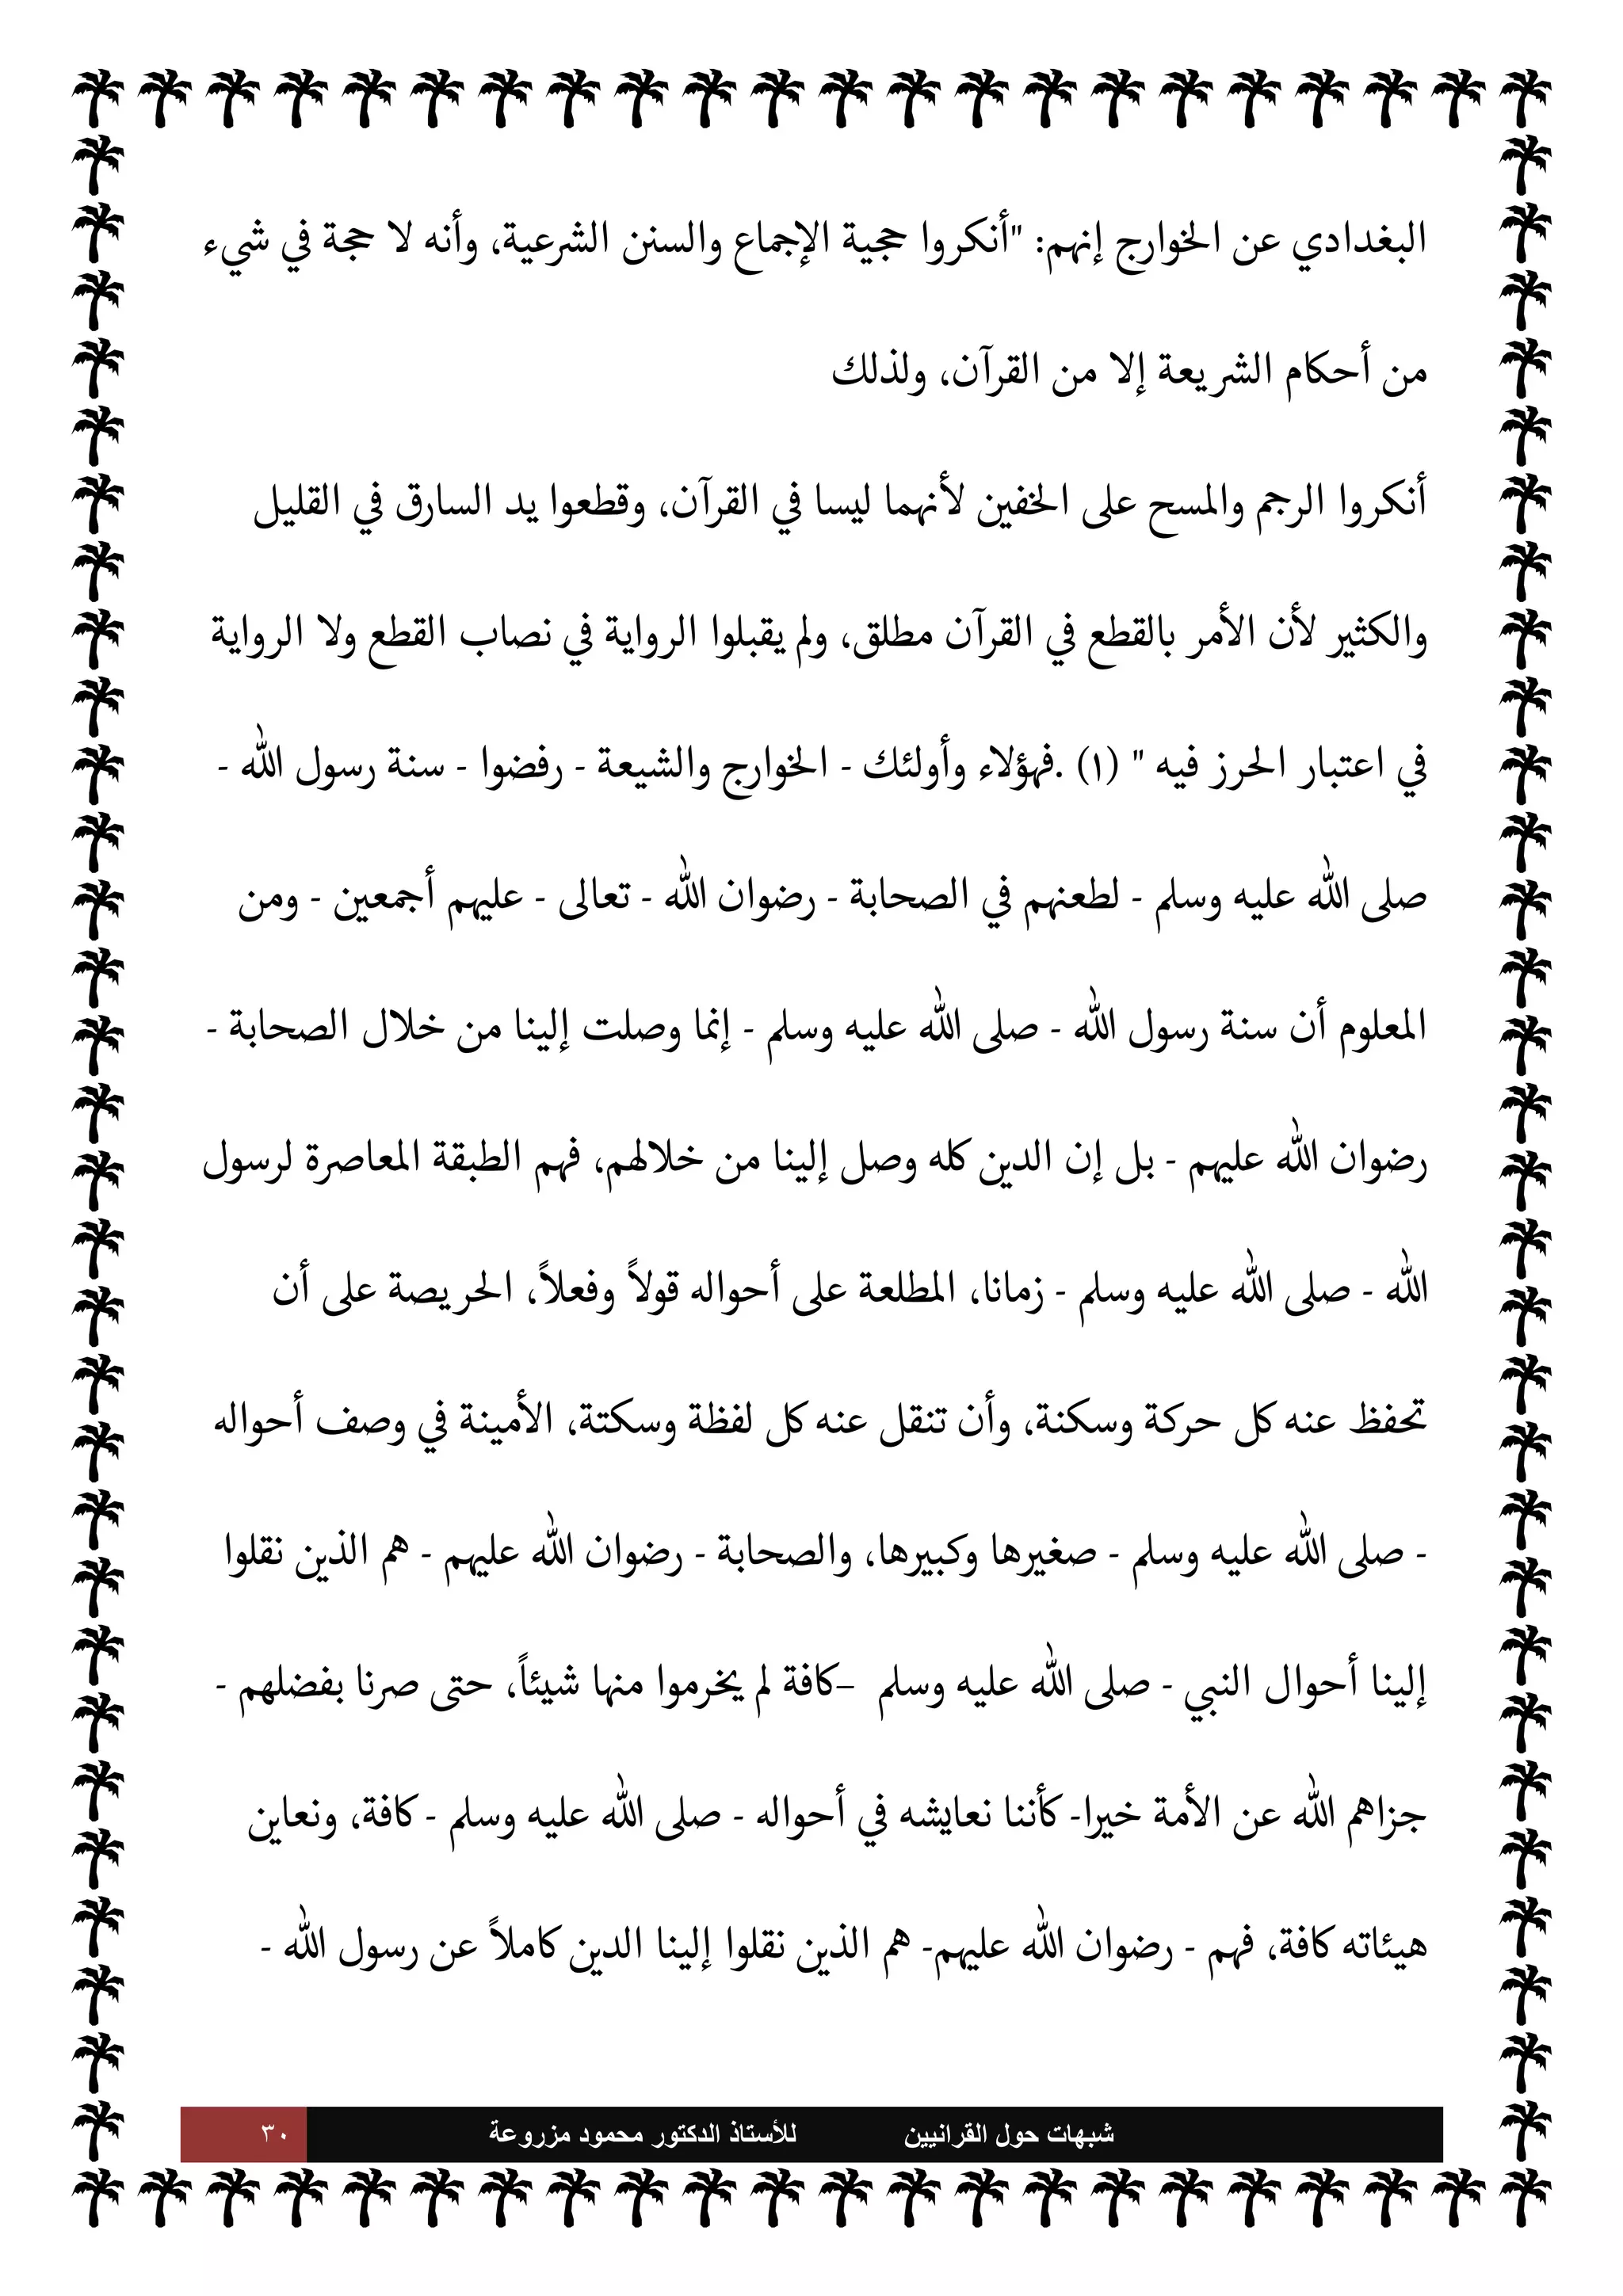 البغدادي عن الخوارج إنهم: "أنكروا حجية الإجماع والسنن الشرعية، وأنه لا حجة في شيء
من أحكام الشريعة إلا من القرآن، ولذلك
أنكروا الرجم والمسح على الخفين لأنهما ليسا في القرآن، وقطعوا يد السارق في القليل
والكثير لأن الأمر بالقطع في القرآن مطلق، ولم يقبلوا الرواية في نصاب القطع ولا الرواية
في اعتبار الحرز فيه " (١) .فهؤلاء وأولئك - الخوارج والشيعة - رفضوا - سنة رسول الله -
صلى الله عليه وسلم - لطعنهم في الصحابة - رضوان الله - تعالى - عليهم أجمعين - ومن
المعلوم أن سنة رسول الله - صلى الله عليه وسلم - إنما وصلت إلينا من خلال الصحابة -
رضوان الله عليهم - بل إن الدين كله وصل إلينا من خلالهم، فهم الطبقة المعاصرة لرسول
الله - صلى الله عليه وسلم - زمانا، المطلعة على أحواله قولاً وفعلاً، الحريصة على أن
تحفظ عنه كل حركة وسكنة، وأن تنقل عنه كل لفظة وسكتة، الأمينة في وصف أحواله
- صلى الله عليه وسلم - صغيرها وكبيرها، والصحابة - رضوان الله عليهم - هم الذين نقلوا
إلينا أحوال النبي - صلى الله عليه وسلم –كافة لم يخرموا منها شيئاً، حتى صرنا بفضلهم -
جزاهم الله عن الأمة خيرا- كأننا نعايشه في أحواله - صلى الله عليه وسلم - كافة، ونعاين
هيئاته كافة، فهم - رضوان الله عليهم- هم الذين نقلوا إلينا الدين كاملاً عن رسول الله -
شبهات حول القرانيين للأستاذ الدكتور محمود مزروعة ٣٠